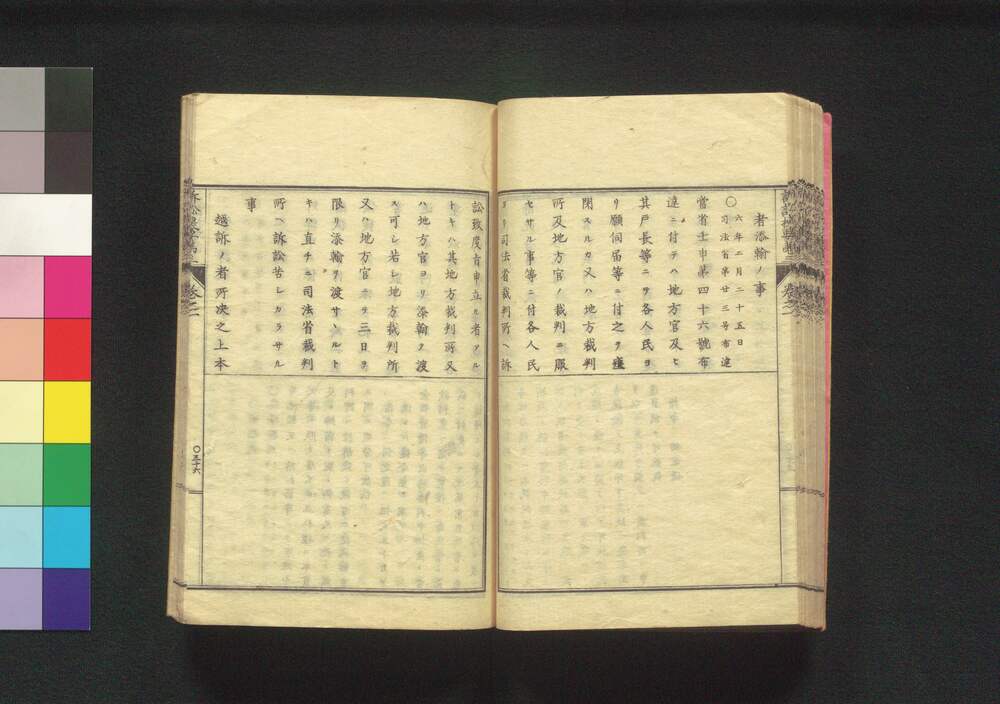 者添翰ノ事
〇六年二月二十五日
司法省第廿三号布達
當省壬申第四十六號布
達ニ付テハ地方官及ヒ
其戸長等ニヲ各人民ヨ
リ願伺届等ニ付之ヲ壅
閉スルカ又ハ地方裁判
所及地方官ノ裁判ニ服
セサル事等ニ付各人民
ヨリ司法省裁判所ヘ訴
訟致度旨申立ル者アル
トキハ其地方裁判所又
ハ地方官ヨリ添翰ヲ渡
ス可シ若シ地方裁判所
又ハ地方官ニヲ三日ヲ
限リ添翰ヲ渡サヽルト
キハ直チニ司法省裁判
所ヘ訴訟苦シカラサル
事
越訴ノ者所决之上本
卷之二
〇五十六